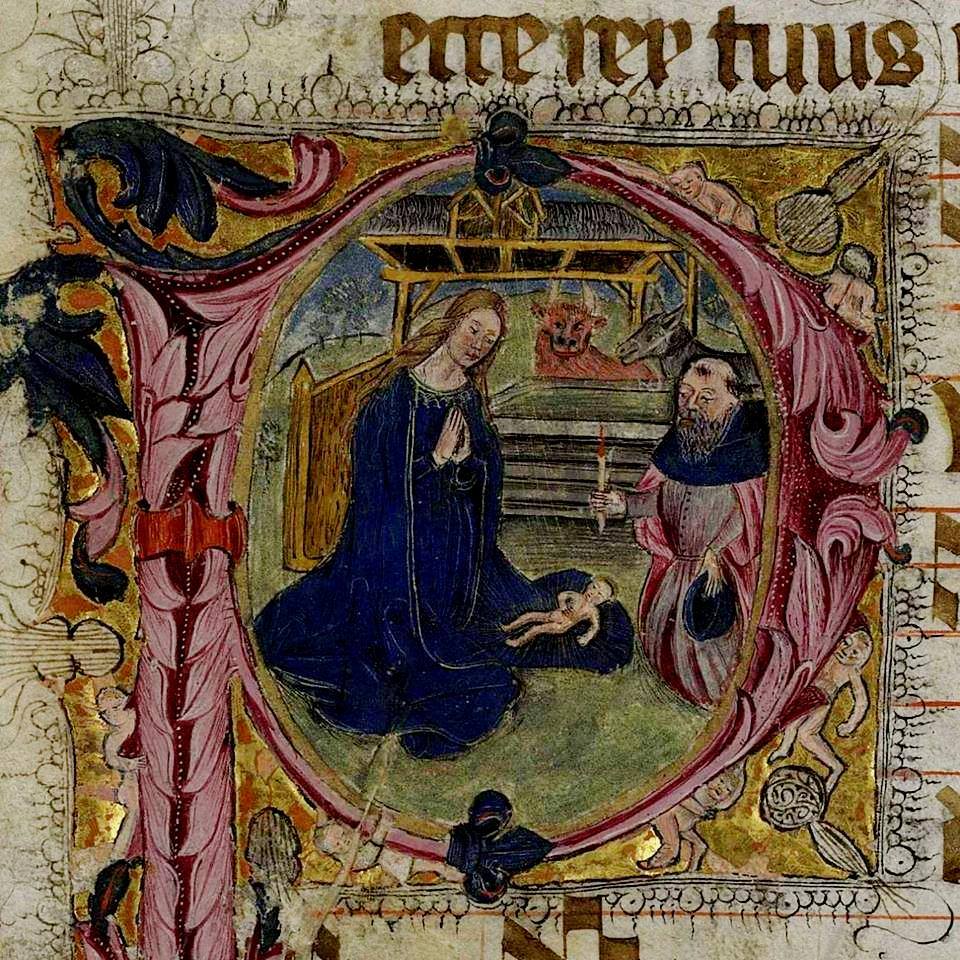 ecce rex tuus
P